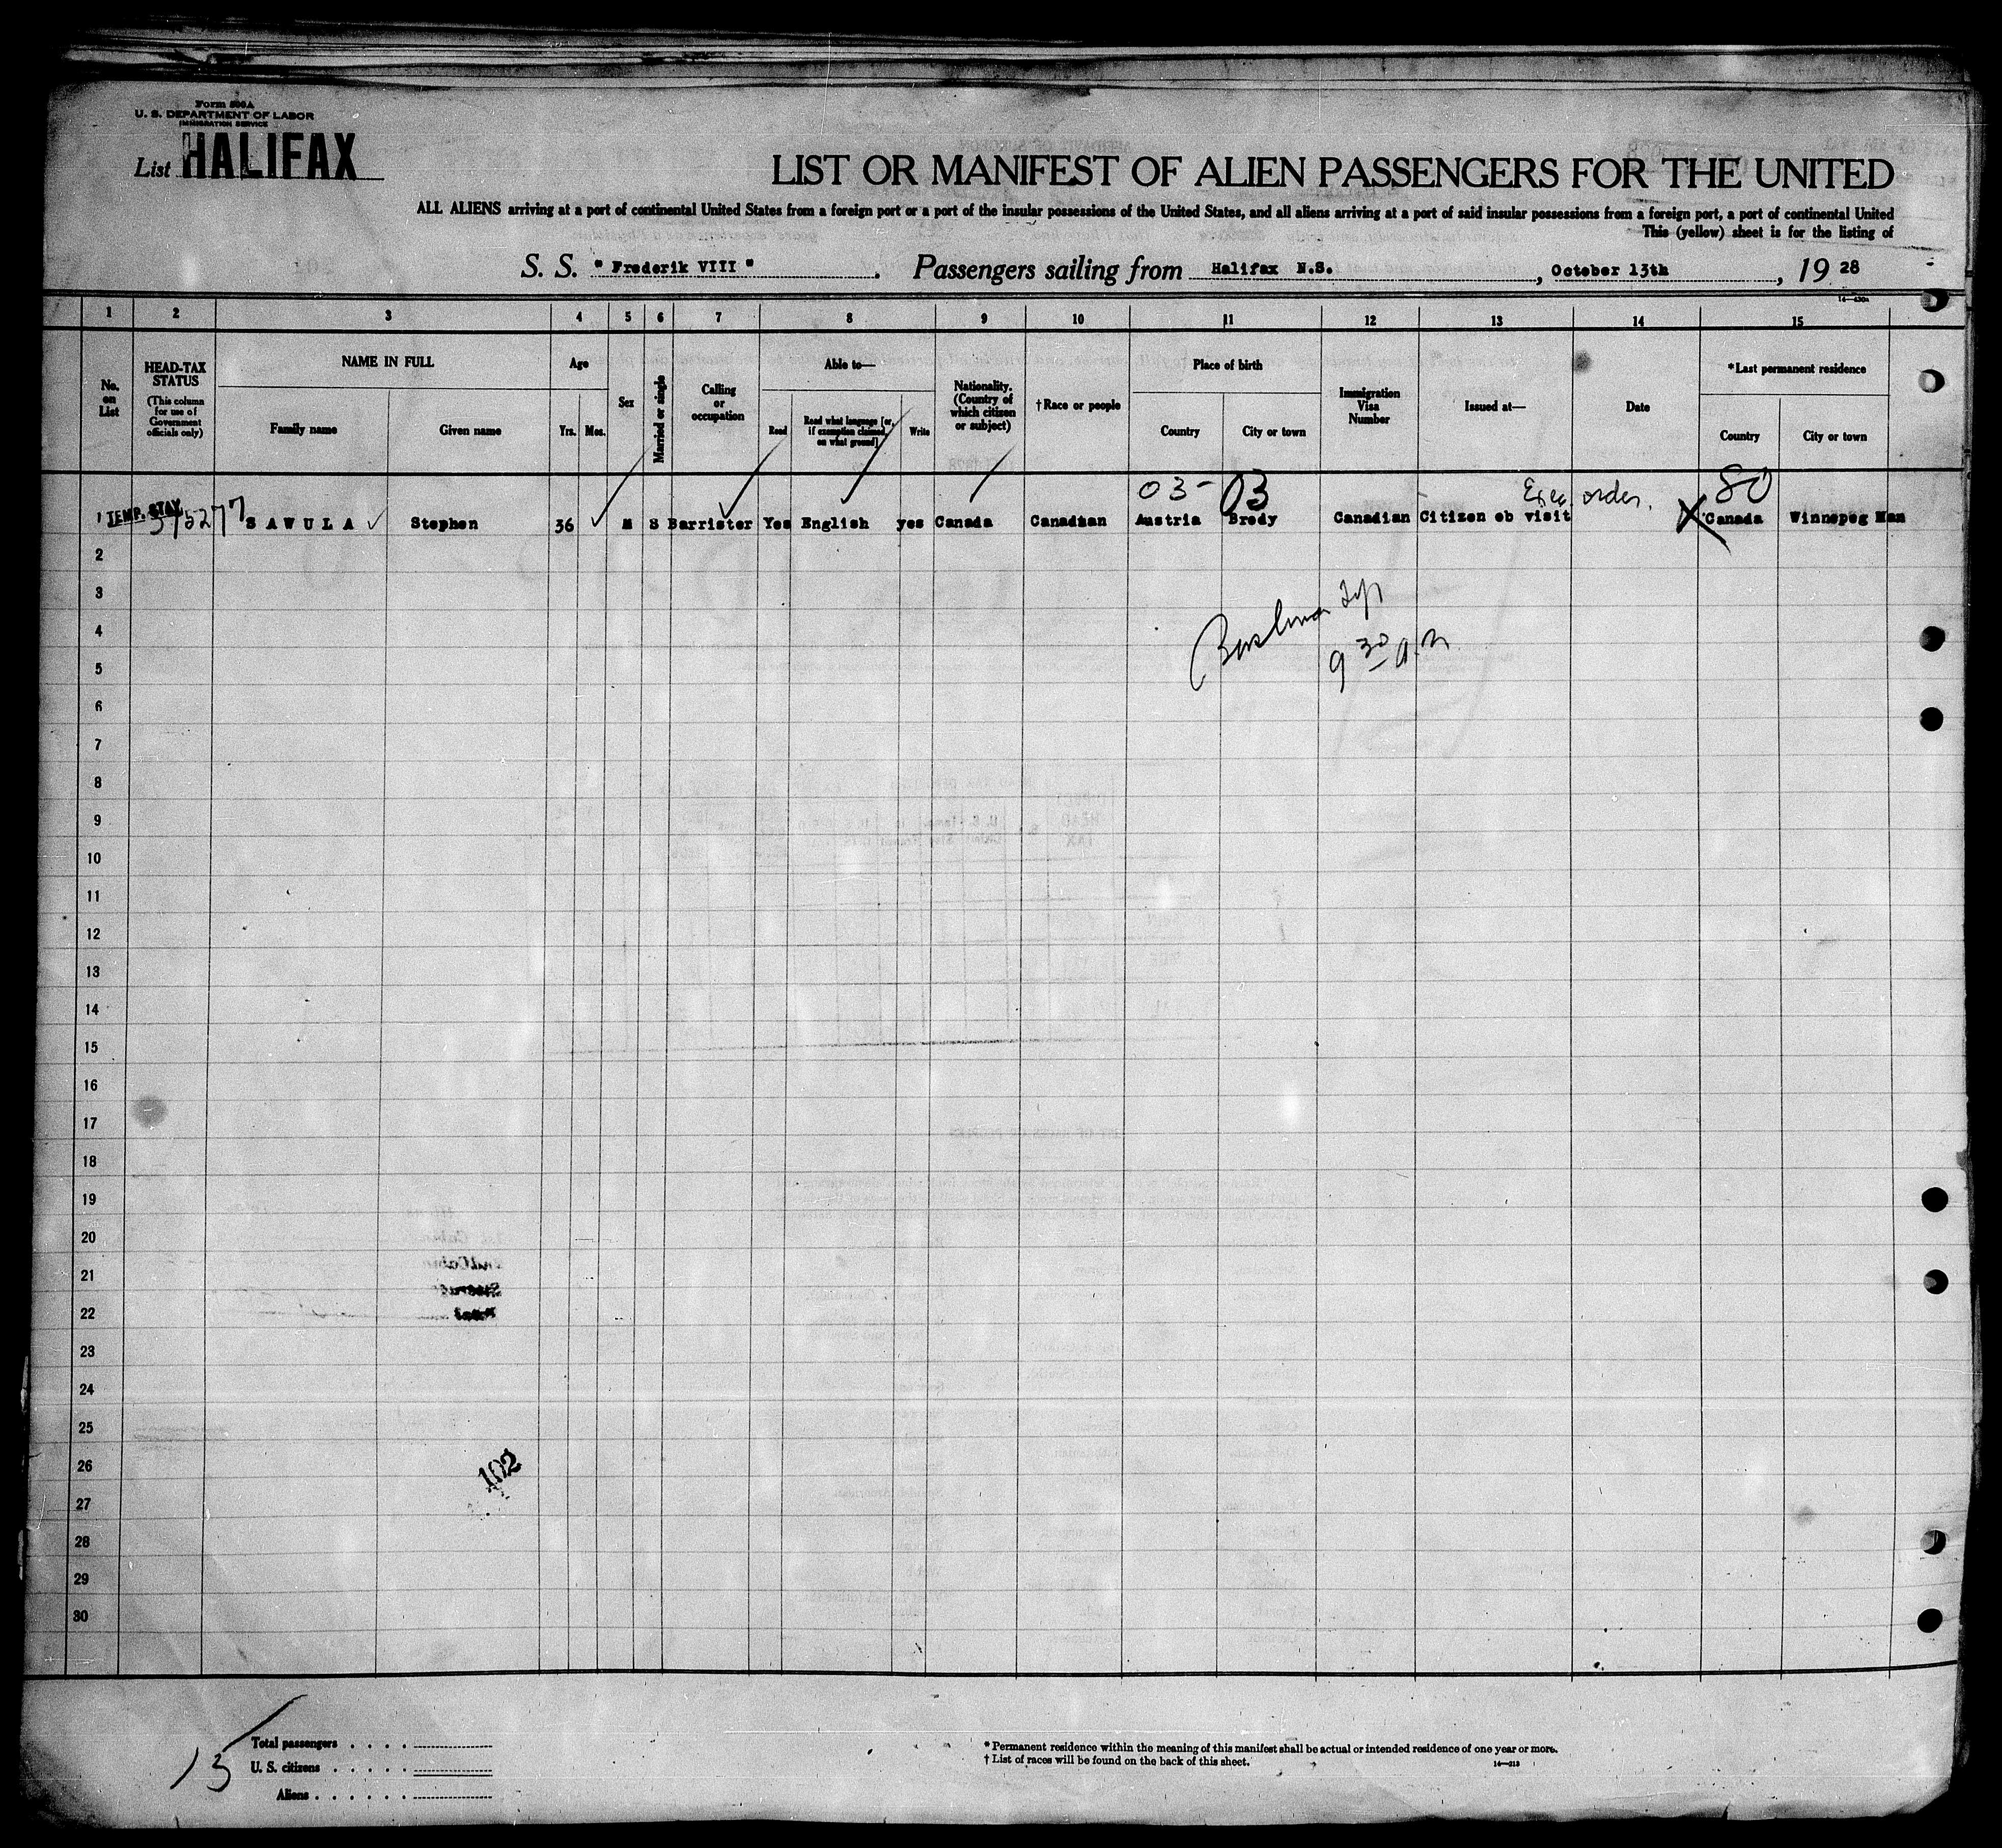 Form 500A
U. S. DEPARTMENT OF LABOR
IMMIGRATION SERVICE
List HALIFAX
LIST OR MANIFEST OF ALIEN PASSENGERS FOR THE UNITED
ALL ALIENS arriving at a port of continental United States from a foreign port or a port of the insular possessions of the United States, and all aliens arriving at a port of said insular possessions from a foreign port, a port of continental United
This (yellow) sheet is for the listing of
S. S. "Frederik VIII". Passengers sailing from Halifax N.S., October 13th, 19 28
1 2 3 4 5 6 7 8 9 10 11 12 13 14 15
No. on List
HEAD-TAX STATUS
(This column for use of Government officials only)
NAME IN FULL
Family name
Given name
Age
Yrs.
Mos.
Sex
Married or single
Calling or occupation
Able to—
Read
Read what language [or, if exemption claimed, on what ground]
Write
Nationality. (Country of which citizen or subject)
† Race or people
Place of birth
Country
City or town
Immigration Visa Number
Issued at—
Date
* Last permanent residence
Country
City or town
03- 03 Exec order. 80
1 TEMP. STAY SAWULA Stephen 36 M S Barrister Yes English yes Canada Canadian Austria Brody Canadian Citizen ob visit X Canada Winnepeg Man
2
3
4
9 30 a.m
5
6
7
8
9
10
11
12
13
14
15
16
17
18
19
20
21
22
23
24
25
26
102
27
28
29
30
15
Total passengers
U. S. citizens
Aliens
* Permanent residence within the meaning of this manifest shall be actual or intended residence of one year or more.
† List of races will be found on the back of this sheet.